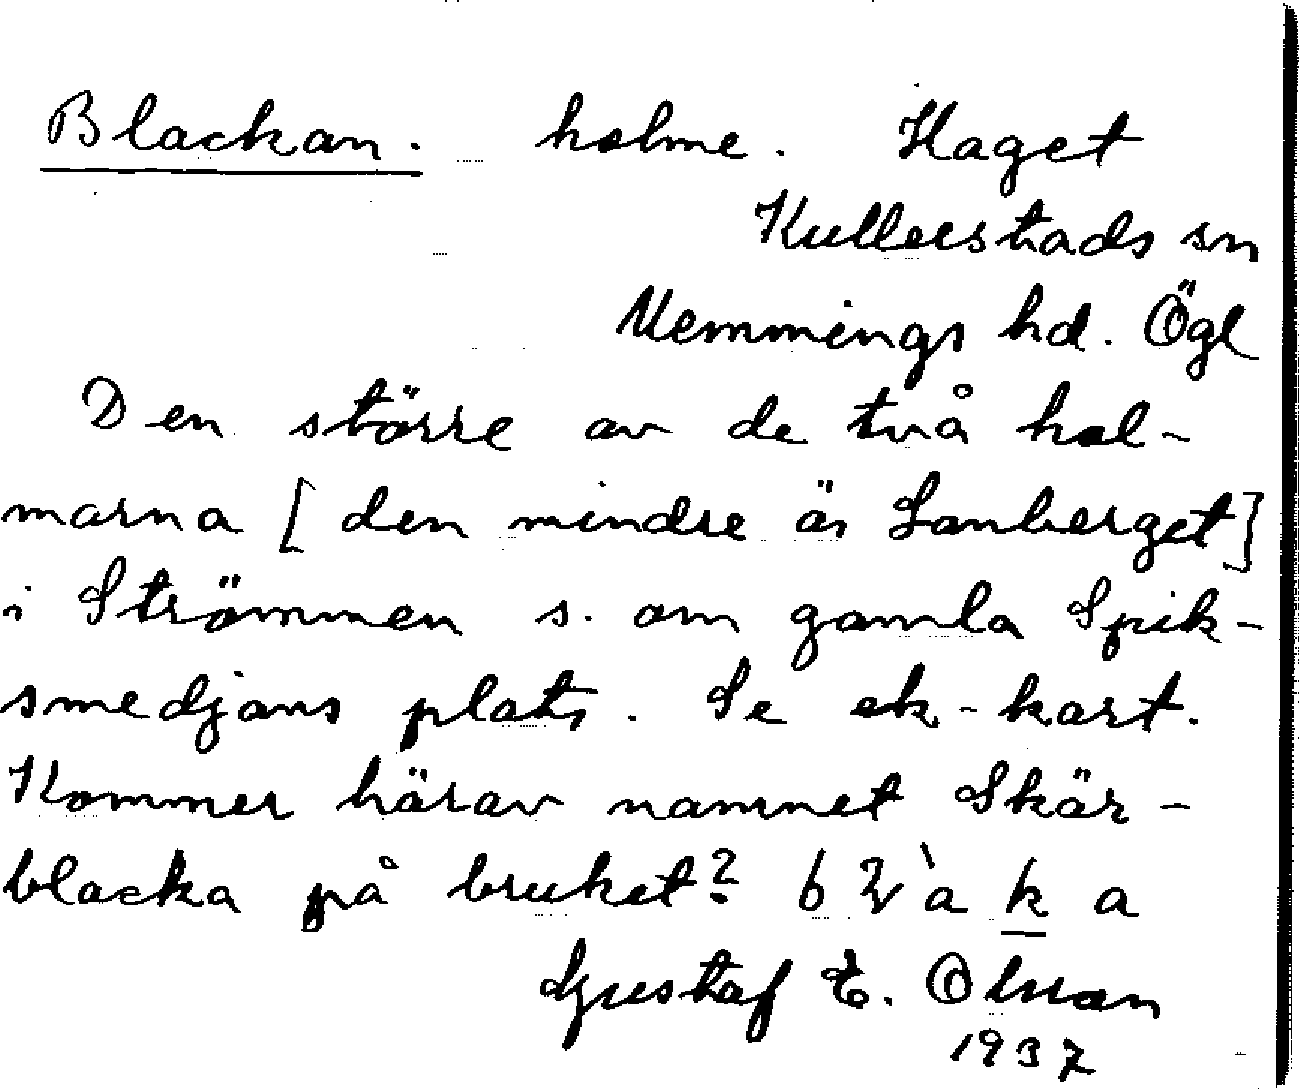 Blackan. holme. Haget
Kullerstads sn
Memmings hd. Ögl
Den större av de två hol-
marna [den mindre är Lanberget]
i Strömmen s. om gamla Spik-
smedjans plats. Se ek-kart.
Kommer härav namnet Skär-
blacka på bruket? b a k a
Gustaf E. Olsson
1937